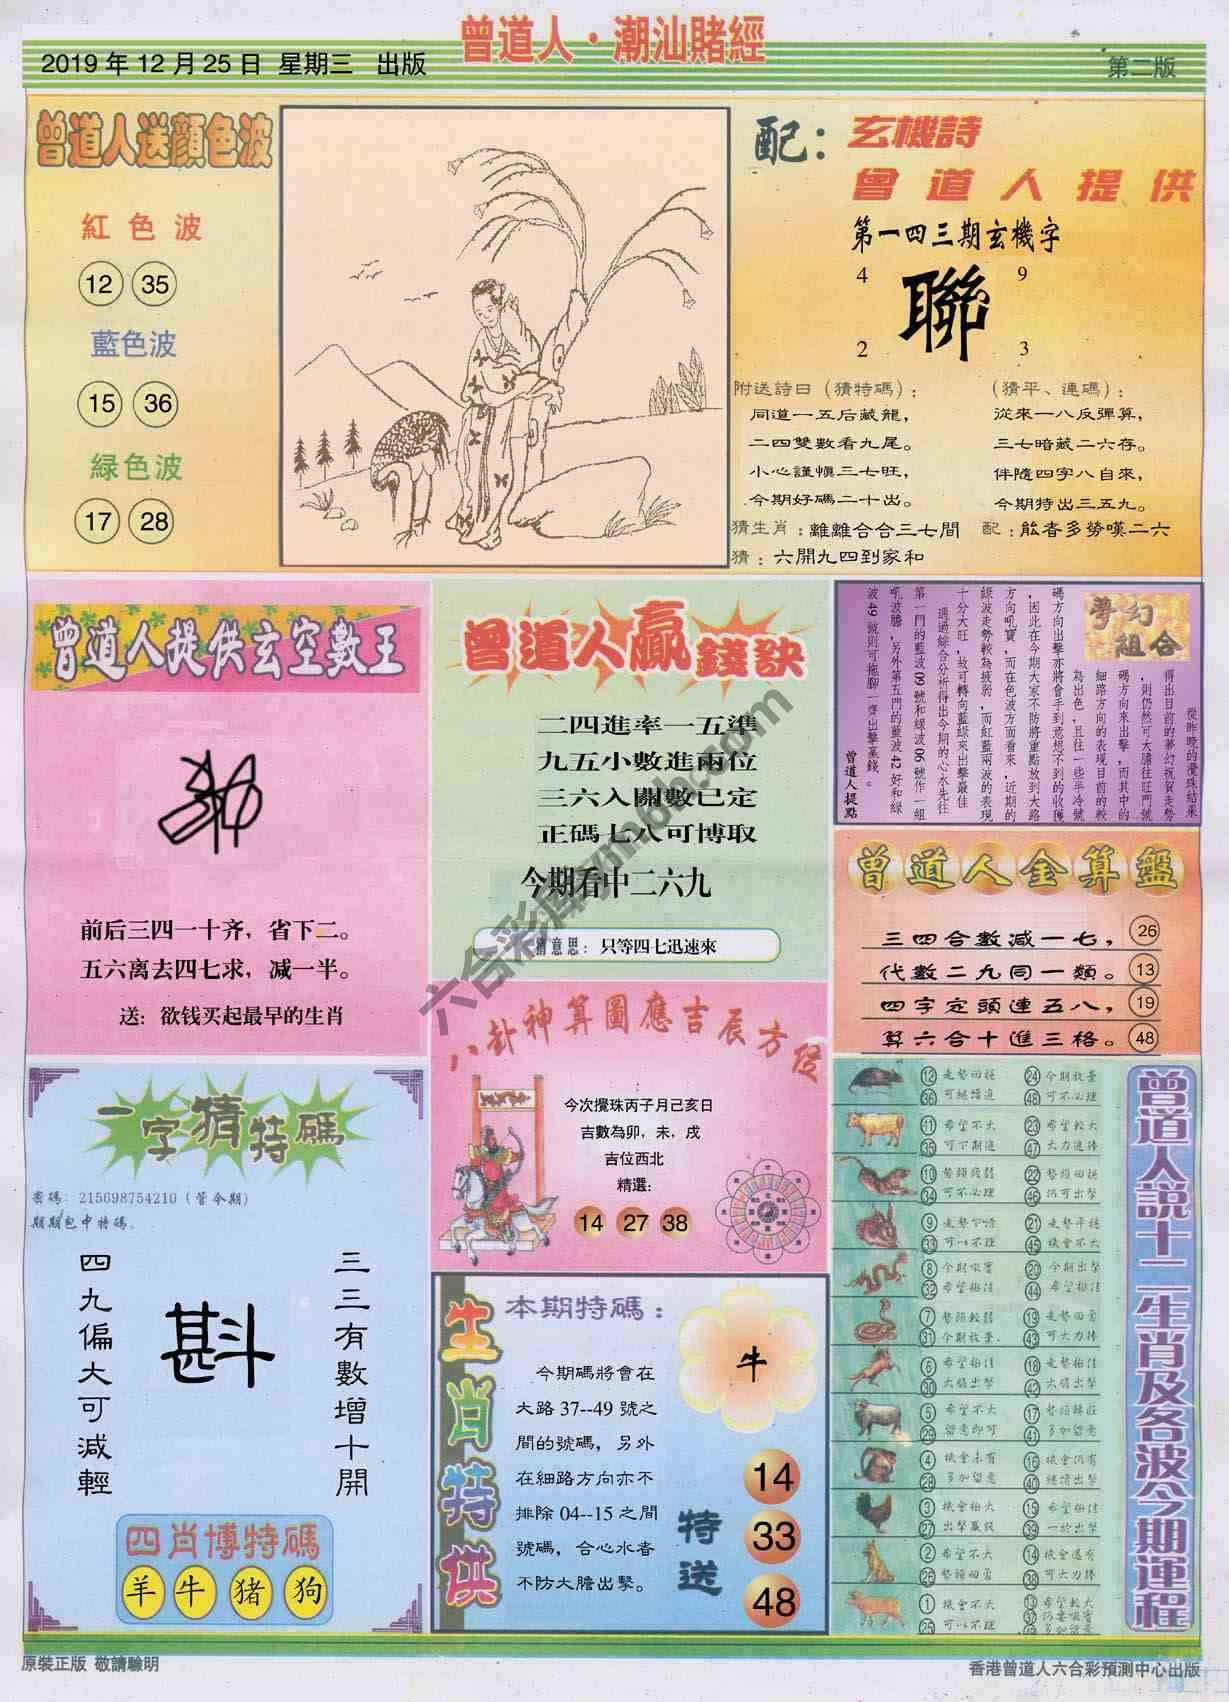 曾道人·潮汕賭經
2019年12月25日 星期三 出版
第二版
曾道人送顏色波
紅色波
12 35
藍色波
15 36
緑色波
17 28
配：
玄機詩
曾道人提供
第一四三期玄機字
4 9
聯
2 3
附送詩曰（猜特碼）：
同道一五后藏龍，
二四雙數看九尾。
小心謹慎三七旺，
今期好碼二十出。
（猜平、連碼）：
從來一八反彈算，
三七暗藏二六存。
伴隨四字八自來，
今期特出三五九。
猜生肖：離離合合三七間
配：能者多勞嘆二六
猜：六開九四到家和
曾道人提供玄空數王
前后三四一十齐，省下二。
五六离去四七求，减一半。
送：欲钱买起最早的生肖
曾道人贏錢訣
二四進率一五準
九五小數進兩位
三六入關數已定
正碼七八可博取
今期看中二六九
猜意思：只等四七迅速來
夢幻組合
從昨晚的攪珠結果
得出目前的夢幻祝賀走勢
，則仍然可大膽往旺門號
碼方向來出擊，而其中的
細路方向的表現目前的較
為出色，且往一些半冷號
碼方向出擊亦將會手到意想不到的收穫
，因此在今期大家不防將重點放到大路
方向吼寶，而在色波方面看來，近期的
綠波走勢較為疲弱，而紅藍兩波的表現
十分大旺，故可轉向藍綠來出擊最佳
。通過綜合分析得出今期的心水先往
第一門的藍波09號和綠波06號作一組
吼波膽，另外第五門的藍波42好和綠
波49號則可拖腳一齊出擊贏錢。
曾道人提點
曾道人金算盤
三四合數減一七，26
代數二九同一類。13
四字定頭連五八，19
算六合十進三格。48
八卦神算圖應吉辰方位
今次攪珠丙子月己亥日
吉數為卯，未，戌
吉位西北
精選：
14 27 38
一字猜特碼
密碼：215698754210（管今期）
期期包中特碼。
三三有數增十開
斟
四九偏大可減輕
四肖博特碼
羊 牛 猪 狗
生肖特供
本期特碼：
牛
今期碼將會在
大路37--49號之
間的號碼，另外
在細路方向亦不
排除04--15之間
號碼，合心水者
不防大膽出擊。
特送
14
33
48
曾道人説十二生肖及各波今期運程
12 36 走勢回穩 可繼續追
24 48 今期放棄 可不必理
11 35 希望不大 可下期追
23 47 希望較大 大力追捧
10 34 勢頭疲弱 可不必理
22 46 勢頭回穩 仍可出擊
9 33 走勢下降 可以不理
21 45 走勢平穩 機會不大
8 32 今期吸實 希望極佳
20 44 今期出擊 希望極佳
7 31 勢頭較弱 今期放棄
19 43 走勢回勇 可大力捧
6 30 希望極佳 大膽出擊
18 42 走勢極佳 大膽出擊
5 29 希望不大 留意即可
17 41 勢頭轉旺 多加留意
4 28 機會未有 多加留意
16 40 機會仍有 繼續出擊
3 27 機會極大 出擊贏錢
15 39 希望極佳 一於出擊
2 26 希望不大 勢頭回勇
14 38 機會還有 可大力捧
1 25 機會不大 可以不理
13 37 49 希望較大 仍要吸實 多加留意
原裝正版 敬請驗明
香港曾道人六合彩預測中心出版